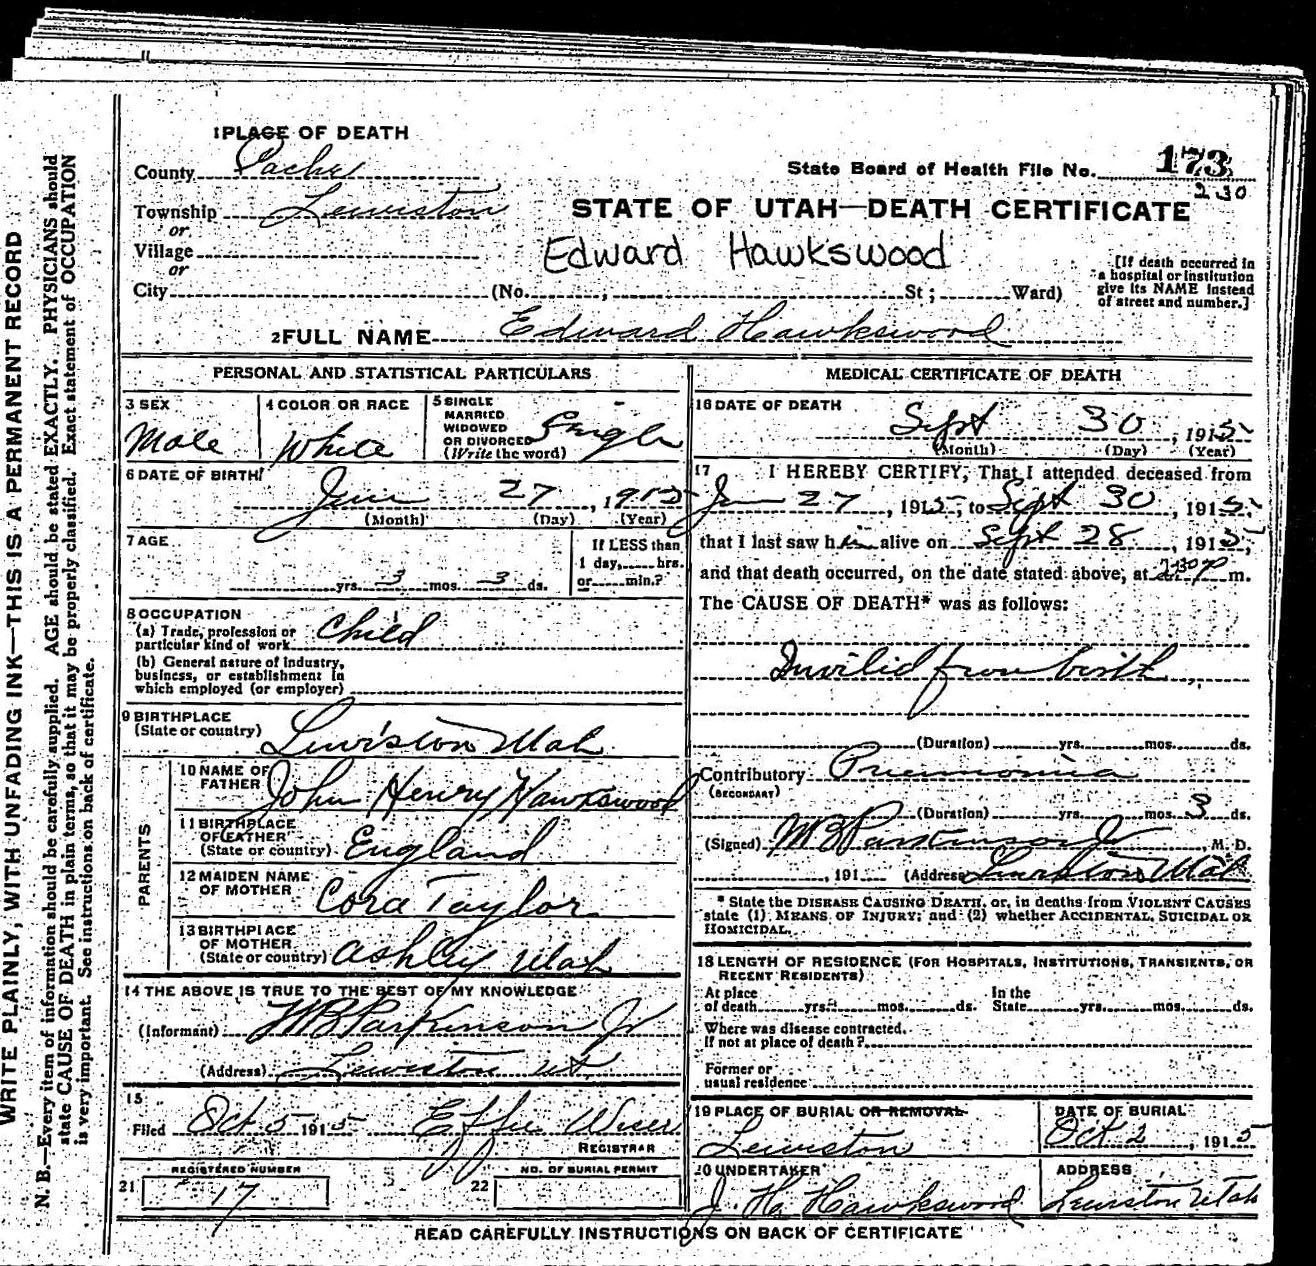 WRITE PLAINLY, WITH UNFADING INK—THIS IS A PERMANENT RECORD
N. B.—Every item of information should be carefully supplied. AGE should be stated EXACTLY. PHYSICIANS should
state CAUSE OF DEATH in plain terms, so that it may be properly classified. Exact statement of OCCUPATION
is very important. See instructions on back of certificate.
1 PLACE OF DEATH
County Cache
State Board of Health File No. 173
230
Township Lewiston
or
STATE OF UTAH—DEATH CERTIFICATE
Village
or
Edward Hawkswood
[If death occurred in
a hospital or institution
give its NAME instead
of street and number.]
City (No. , St ; Ward)
2 FULL NAME Edward Hawkswood
PERSONAL AND STATISTICAL PARTICULARS
3 SEX
Male
4 COLOR OR RACE
White
5 SINGLE
MARRIED
WIDOWED
OR DIVORCED
(Write the word)
Single
6 DATE OF BIRTH
June 27, 1915
(Month) (Day) (Year)
7 AGE
yrs. 3 mos. 3 ds.
If LESS than
1 day, hrs.
or min.?
8 OCCUPATION
(a) Trade, profession or
particular kind of work Child
(b) General nature of industry,
business, or establishment in
which employed (or employer)
9 BIRTHPLACE
(State or country) Lewiston Utah
PARENTS
10 NAME OF
FATHER John Henry Hawkswood
11 BIRTHPLACE
OF FATHER
(State or country) England
12 MAIDEN NAME
OF MOTHER Cora Taylor
13 BIRTHPLACE
OF MOTHER
(State or country) Ashley Utah
14 THE ABOVE IS TRUE TO THE BEST OF MY KNOWLEDGE
(Informant) W B Parkinson Jr
(Address) Lewiston Ut
15
Filed Oct 5 1915 Effie Wiser
REGISTRAR
REGISTERED NUMBER
21 17
NO. OF BURIAL PERMIT
22
MEDICAL CERTIFICATE OF DEATH
16 DATE OF DEATH
Sept 30, 1915
(Month) (Day) (Year)
17 I HEREBY CERTIFY, That I attended deceased from
27, 1915, to Sept 30, 1915,
that I last saw him alive on Sept 28, 1915,
and that death occurred, on the date stated above, at 230 P m.
The CAUSE OF DEATH* was as follows:
Invilid from birth
(Duration) yrs. mos. ds.
Contributory Pneumonia
(SECONDARY)
(Duration) yrs. mos. 3 ds.
(Signed) W B Parkinson Jr, M. D.
, 191 (Address) Lewiston Utah
* State the DISEASE CAUSING DEATH, or, in deaths from VIOLENT CAUSES
state (1) MEANS OF INJURY; and (2) whether ACCIDENTAL, SUICIDAL OR
HOMICIDAL.
18 LENGTH OF RESIDENCE (FOR HOSPITALS, INSTITUTIONS, TRANSIENTS, OR
RECENT RESIDENTS)
At place
of death yrs. mos. ds.
In the
State yrs. mos. ds.
Where was disease contracted.
If not at place of death?
Former or
usual residence
19 PLACE OF BURIAL OR REMOVAL
Lewiston
DATE OF BURIAL
Oct 2, 1915
20 UNDERTAKER
J. H. Hawkswood
ADDRESS
Lewiston Utah
READ CAREFULLY INSTRUCTIONS ON BACK OF CERTIFICATE